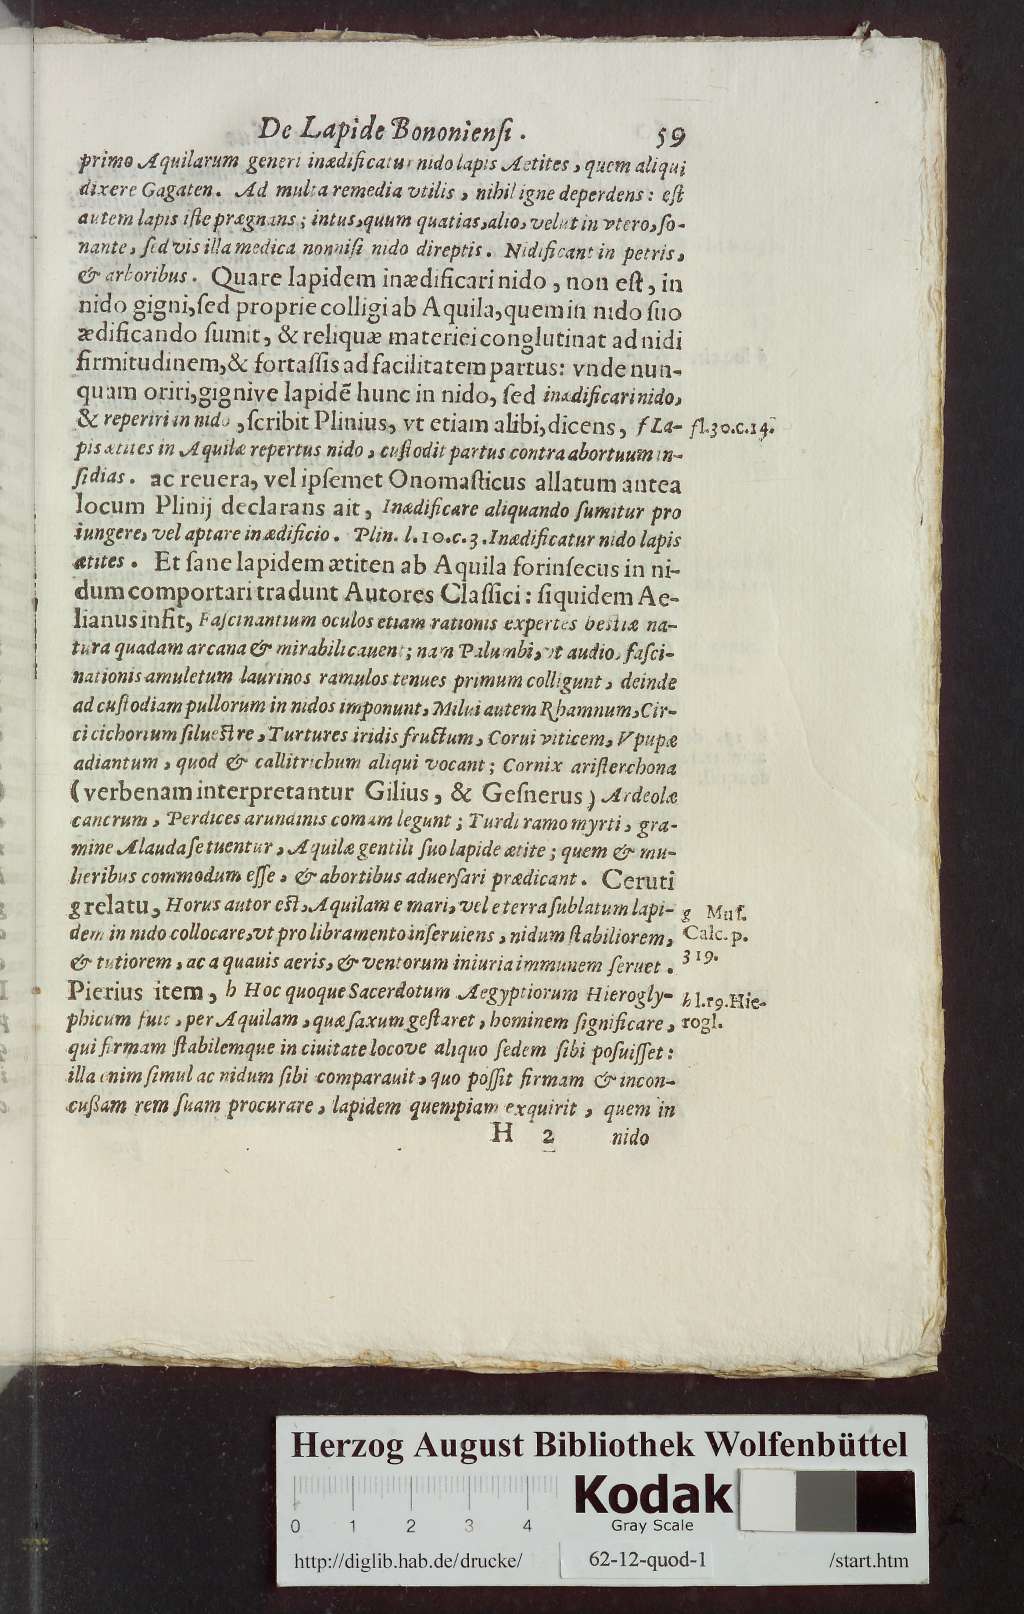 De Lapide Bononienſi. 59
primo Aquilarum generi inædificatur nido lapis Aetites, quem aliqui
dixere Gagaten. Ad multa remedia vtilis, nihil igne deperdens: eſt
autem lapis iſte prægnans; intus, quum quatias, alio, velut in vtero, ſo-
nante, ſed vis illa medica nonniſi nido direptis. Nidificant in petris,
& arboribus. Quare lapidem inædificari nido, non eſt, in
nido gigni, ſed proprie colligi ab Aquila, quem in nido ſuo
ædificando ſumit, & reliquæ materiei conglutinat ad nidi
firmitudinem, & fortaſſis ad facilitatem partus: vnde nun-
quam oriri, gignive lapidẽ hunc in nido, ſed inædificari nido,
& reperiri in nido, ſcribit Plinius, vt etiam alibi, dicens, f La- f l.30.c.14.
pis ætites in Aquilæ repertus nido, cuſtodit partus contra abortuum in-
ſidias. ac reuera, vel ipſemet Onomaſticus allatum antea
locum Plinij declarans ait, Inædificare aliquando ſumitur pro
iungere, vel aptare in ædificio. Plin. l.10.c.3. Inædificatur nido lapis
ætites. Et ſane lapidem ætiten ab Aquila forinſecus in ni-
dum comportari tradunt Autores Claſſici: ſiquidem Ae-
lianus infit, Faſcinantium oculos etiam rationis expertes beſtiæ na-
tura quadam arcana & mirabili cauent; nam Palumbi, vt audio, faſci-
nationis amuletum laurinos ramulos tenues primum colligunt, deinde
ad cuſtodiam pullorum in nidos imponunt, Milui autem Rhamnum, Cir-
ci cichorium ſilueſtre, Turtures iridis fructum, Corui viticem, Vpupæ
adiantum, quod & callitrichum aliqui vocant; Cornix ariſterchona
(verbenam interpretantur Gilius, & Geſnerus) Ardeolæ
cancrum, Perdices arundinis comam legunt; Turdi ramo myrti, gra-
mine Alauda ſe tuentur, Aquilæ gentili ſuo lapide ætite; quem & mu-
lieribus commodum eſſe, & abortibus aduerſari prædicant. Ceruti
g relatu, Horus autor eſt, Aquilam e mari, vel e terra ſublatum lapi- g Muſ.
dem in nido collocare, vt pro libramento inſeruiens, nidum ſtabiliorem, Calc. p.
& tutiorem, ac a quauis aeris, & ventorum iniuria immunem ſeruet. 319.
Pierius item, h Hoc quoque Sacerdotum Aegyptiorum Hierogly- h l.19. Hie-
phicum fuit, per Aquilam, quæ ſaxum geſtaret, hominem ſignificare, rogl.
qui firmam ſtabilemque in ciuitate locove aliquo ſedem ſibi poſuiſſet:
illa enim ſimul ac nidum ſibi comparauit, quo poſſit firmam & incon-
cuſſam rem ſuam procurare, lapidem quempiam exquirit, quem in
H 2 nido
Herzog August Bibliothek Wolfenbüttel
0 1 2 3 4
Kodak
Gray Scale
http://diglib.hab.de/drucke/ 62-12-quod-1 /start.htm